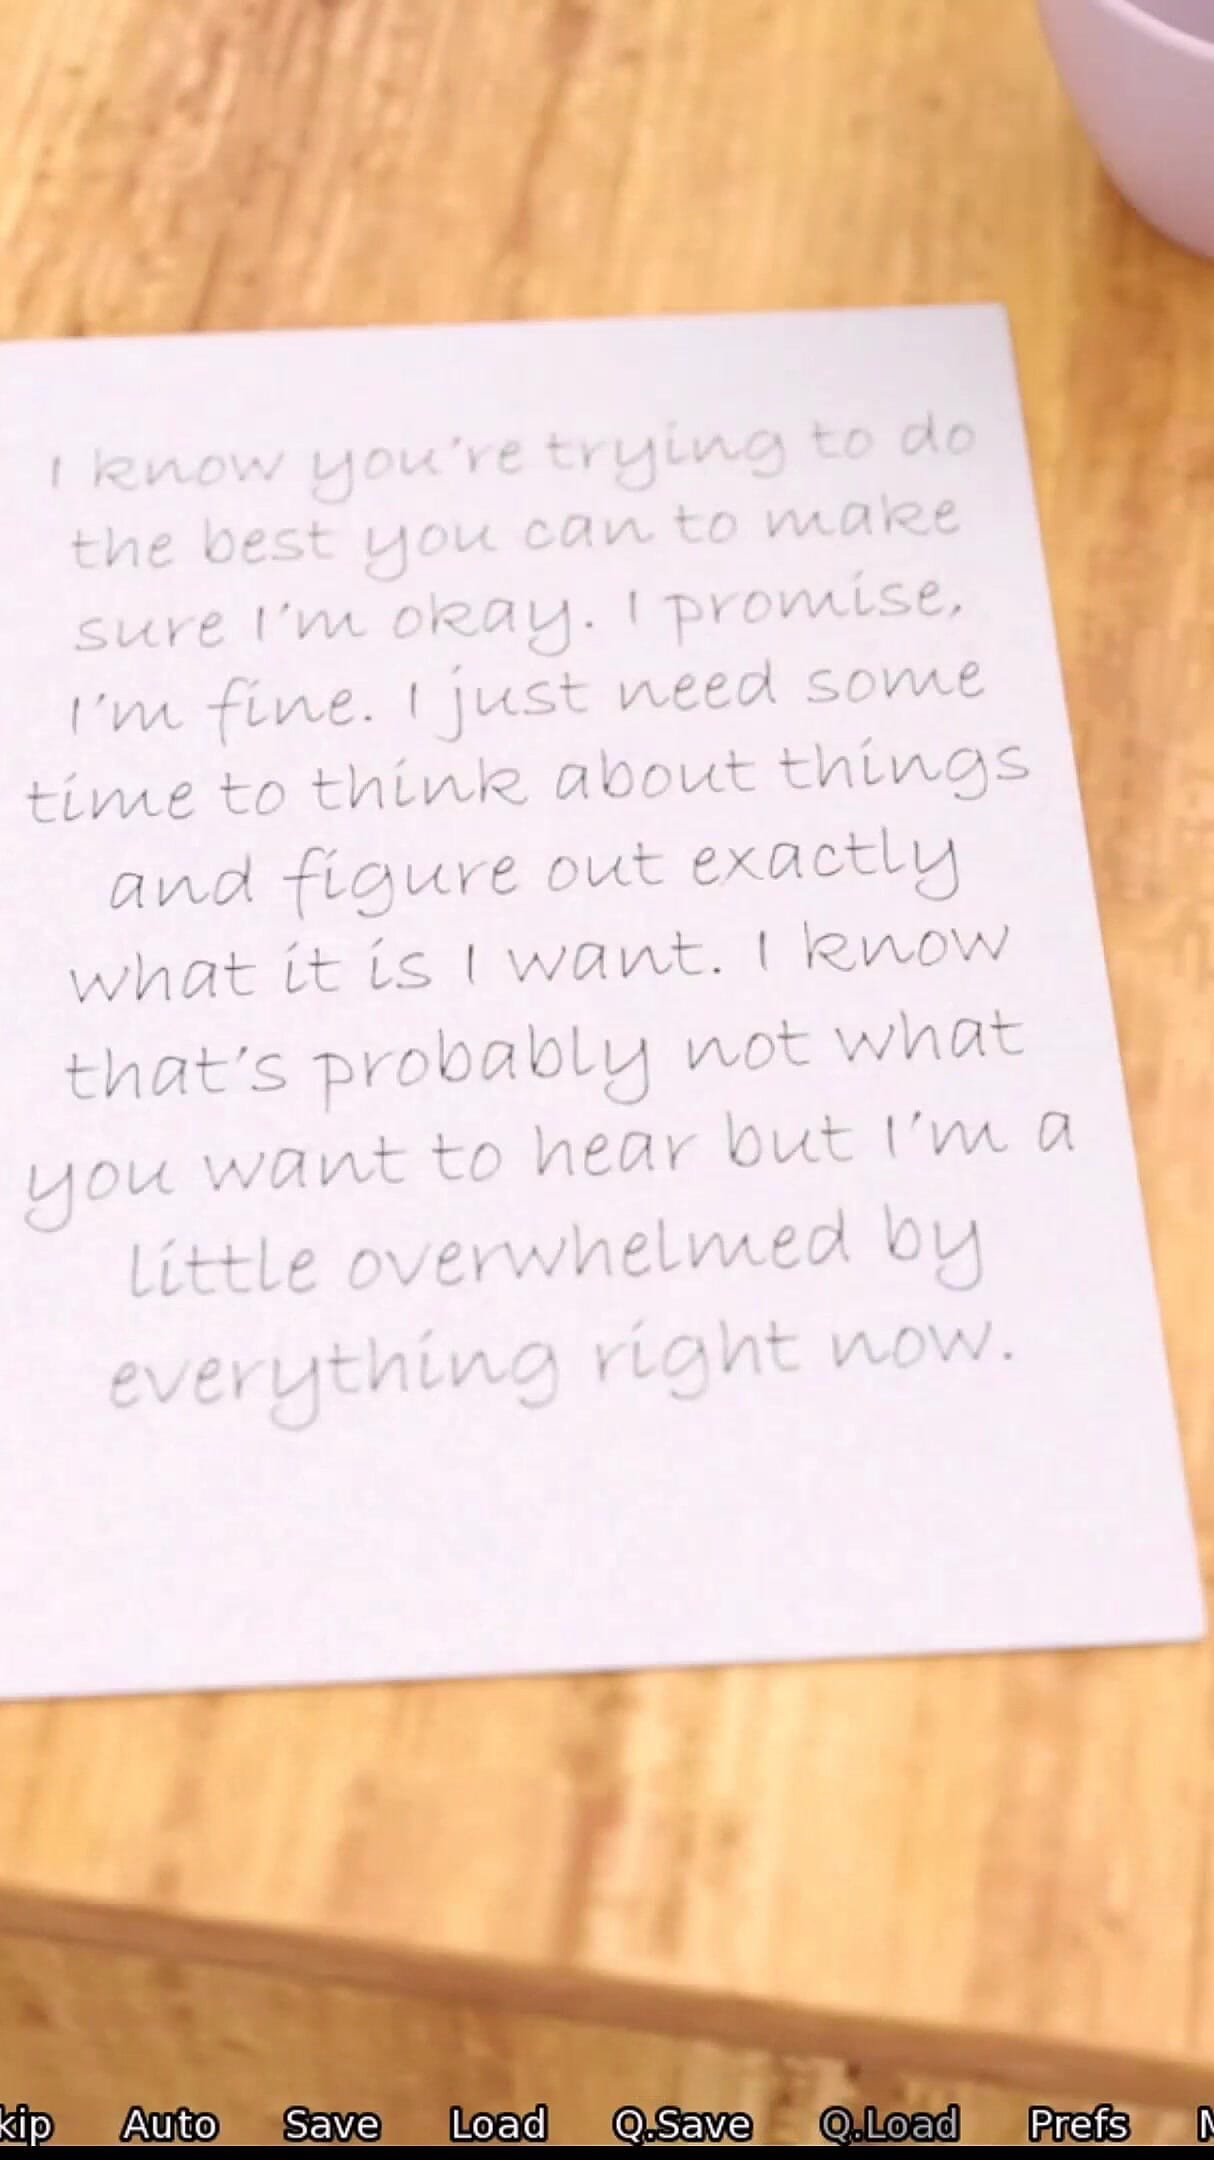 I know you're trying to do
the best you can to make
sure I'm okay. I promise,
I'm fine. I just need some
time to think about things
and figure out exactly
what it is I want. I know
that's probably not what
you want to hear but I'm a
little overwhelmed by
everything right now.
kip Auto Save Load Q.Save Q.Load Prefs M